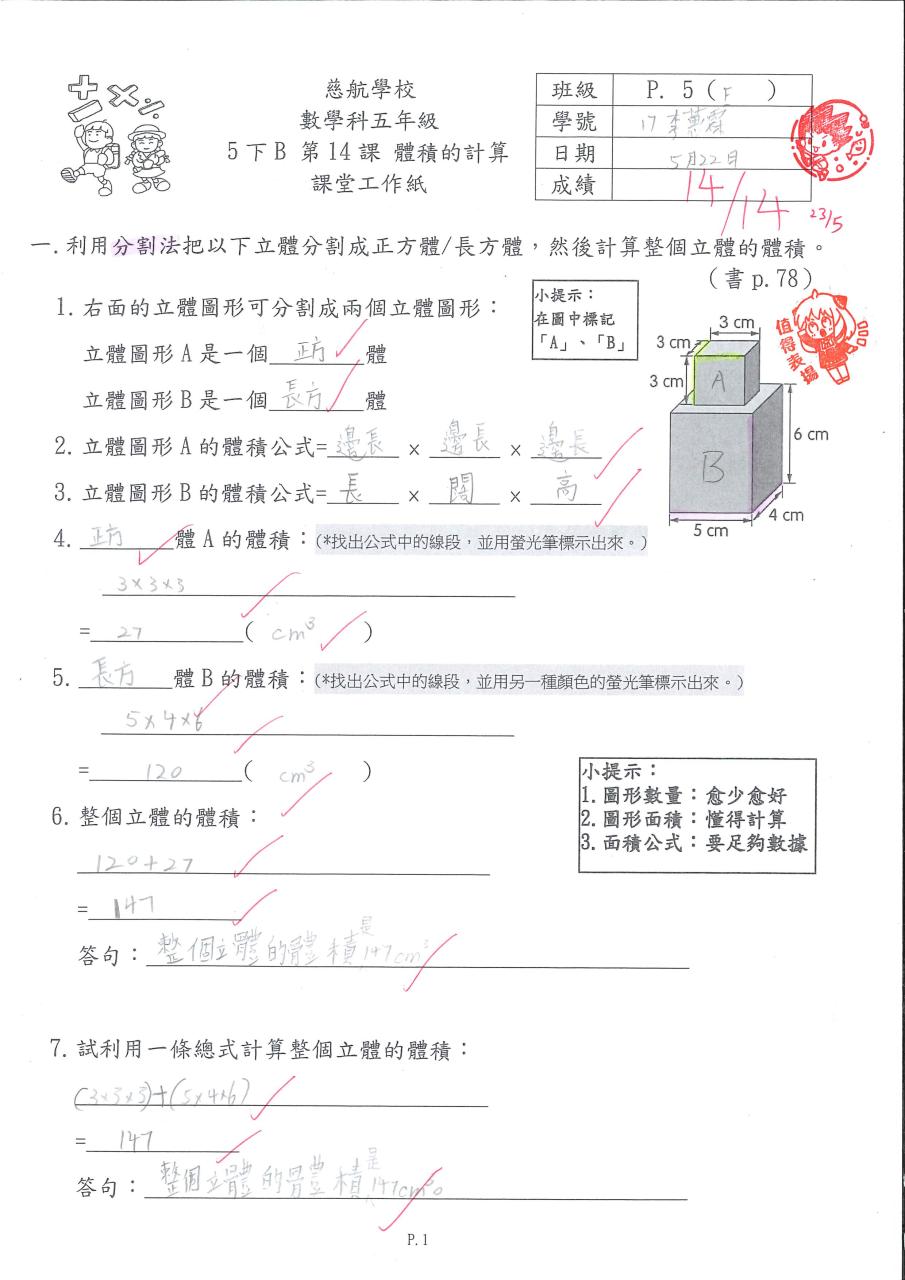 慈航學校
數學科五年級
5下B 第14課 體積的計算
課堂工作紙
班級 P. 5 ( F )
學號 17 李
日期 5月22日
成績 14/14
23/5
一.利用分割法把以下立體分割成正方體/長方體，然後計算整個立體的體積。
(書p.78)
1.右面的立體圖形可分割成兩個立體圖形：
立體圖形A是一個 正方 體
立體圖形B是一個 長方 體
小提示：
在圖中標記
「A」、「B」
3 cm
3 cm
3 cm
A
B
6 cm
4 cm
5 cm
值得表揚
2.立體圖形A的體積公式= 邊長 × 邊長 × 邊長
3.立體圖形B的體積公式= 長 × 闊 × 高
4. 正方 體A的體積：(*找出公式中的線段，並用螢光筆標示出來。)
3×3×3
= 27 ( cm³ )
5. 長方 體B的體積：(*找出公式中的線段，並用另一種顏色的螢光筆標示出來。)
5×4×6
= 120 ( cm³ )
6.整個立體的體積：
120+27
= 147
答句：整個立體的體積是147cm³
小提示：
1.圖形數量：愈少愈好
2.圖形面積：懂得計算
3.面積公式：要足夠數據
7.試利用一條總式計算整個立體的體積：
(3×3×3)+(5×4×6)
= 147
答句：整個立體的體積是147cm³。
P.1